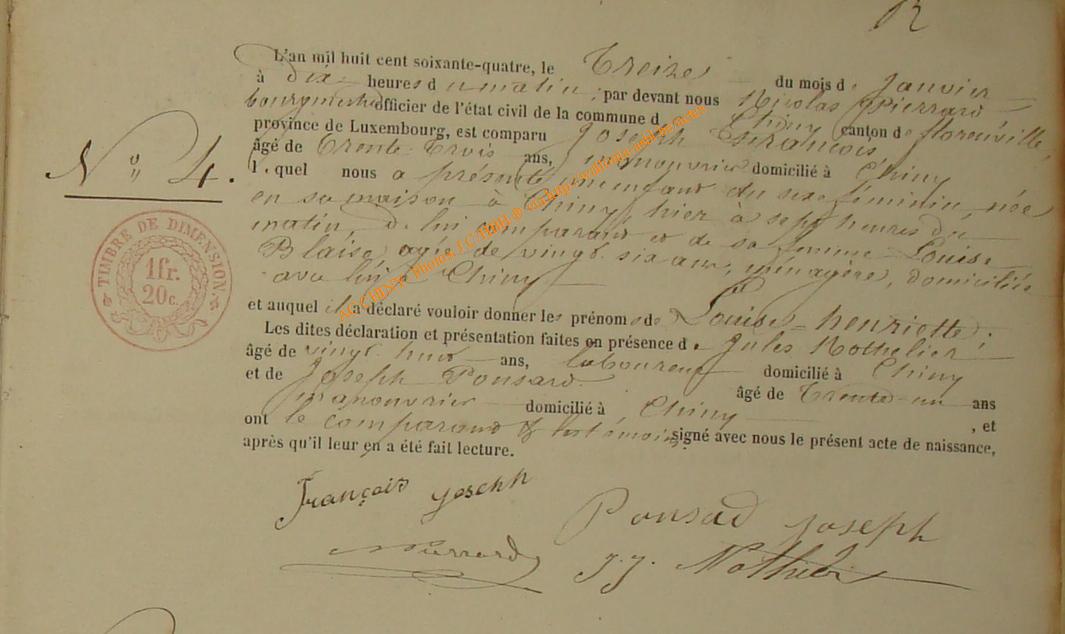 R
L'an mil huit cent soixante-quatre, le Treize du mois de Janvier
à dix heures du matin, par devant nous Nicolas Pierrard
bourgmestre officier de l'état civil de la commune d Chiny canton de florenville,
province de Luxembourg, est comparu Joseph François
âgé de Trente-Trois ans, manouvrier domicilié à Chiny
l quel nous a présenté un enfant du sexe féminin, née
en sa maison à Chiny, hier à sept heures du
matin, de lui comparant et de sa femme Louise
Blaise agée de vingt six ans, ménagère, domiciliée
avec lui à Chiny
et auquel il a déclaré vouloir donner les prénoms de Louise-henriette;
Les dites déclaration et présentation faites en présence de Jules Nothelier
âgé de vingt huit ans, laboureur domicilié à Chiny
et de Joseph Ponsard âgé de Trente-un ans
manouvrier domicilié à Chiny, et
ont le comparant & les témoins signé avec nous le présent acte de naissance,
après qu'il leur en a été fait lecture.
No 4.
TIMBRE DE DIMENSION
1 fr.
20 c.
François Joseph
Ponsad Joseph
NPierrard
J. J. Nothier